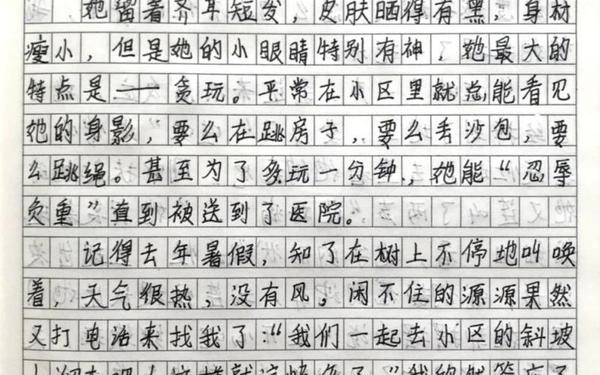 ，她留着齐耳短发，皮肤晒得有黑，身材
瘦小，但是她的小眼睛特别有神，她最大的
特点是——贪玩。平常在小区里就总能看见
她的身影，要么在跳房子，要么丢沙包，要
么跳绳。甚至为了多玩一分钟，她能“忍辱
负重”直到被送到了医院。
记得去年暑假，知了在树上不停地叫唤
着，天气很热，没有风。闲不住的源源果然
又打电话来找我了：“我们一起去小区的斜坡